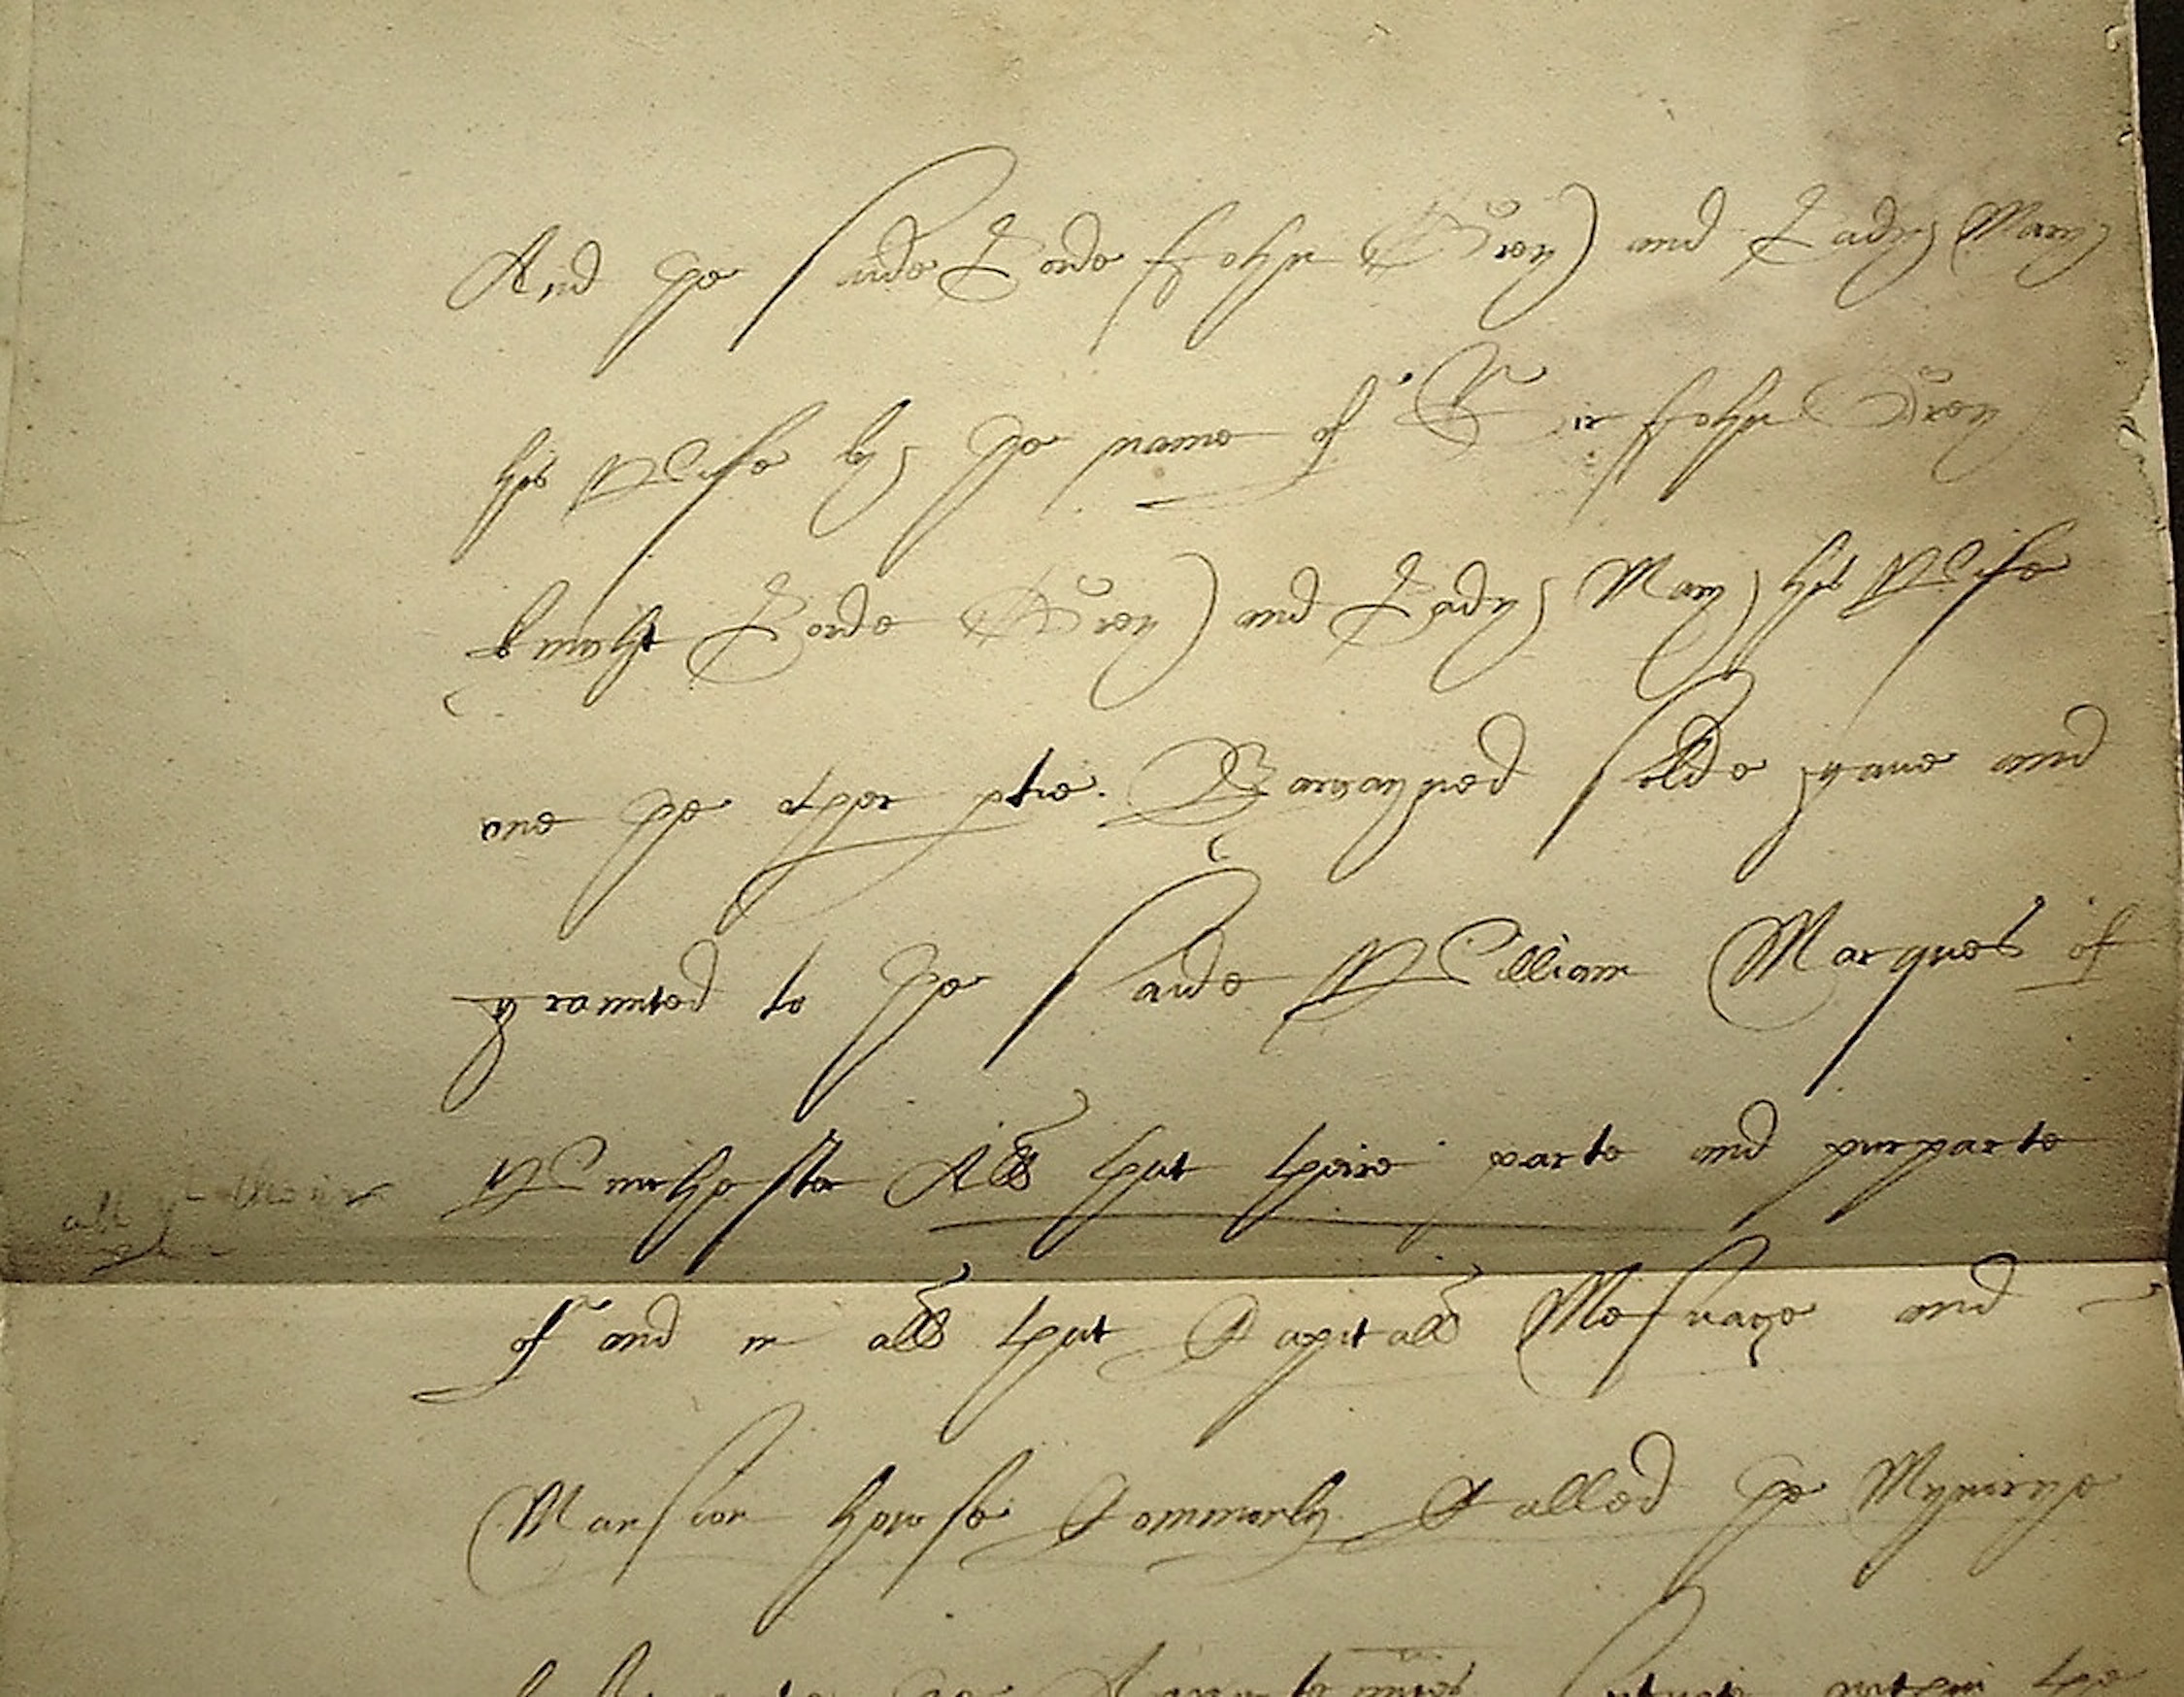 And the saide Lorde John Grey and Lady Mary
his Wife by the name of Sir John Grey
knight Lorde Grey and Lady Mary his Wife
one the other ptie. Bargayned solde gaue and
graunted to the saide William Marques of
Winchester All that theire parte and purparte
all yt their
of and in all that Capitall Mesuage and
Mansion house Commonly Called the Mynirye
the within the